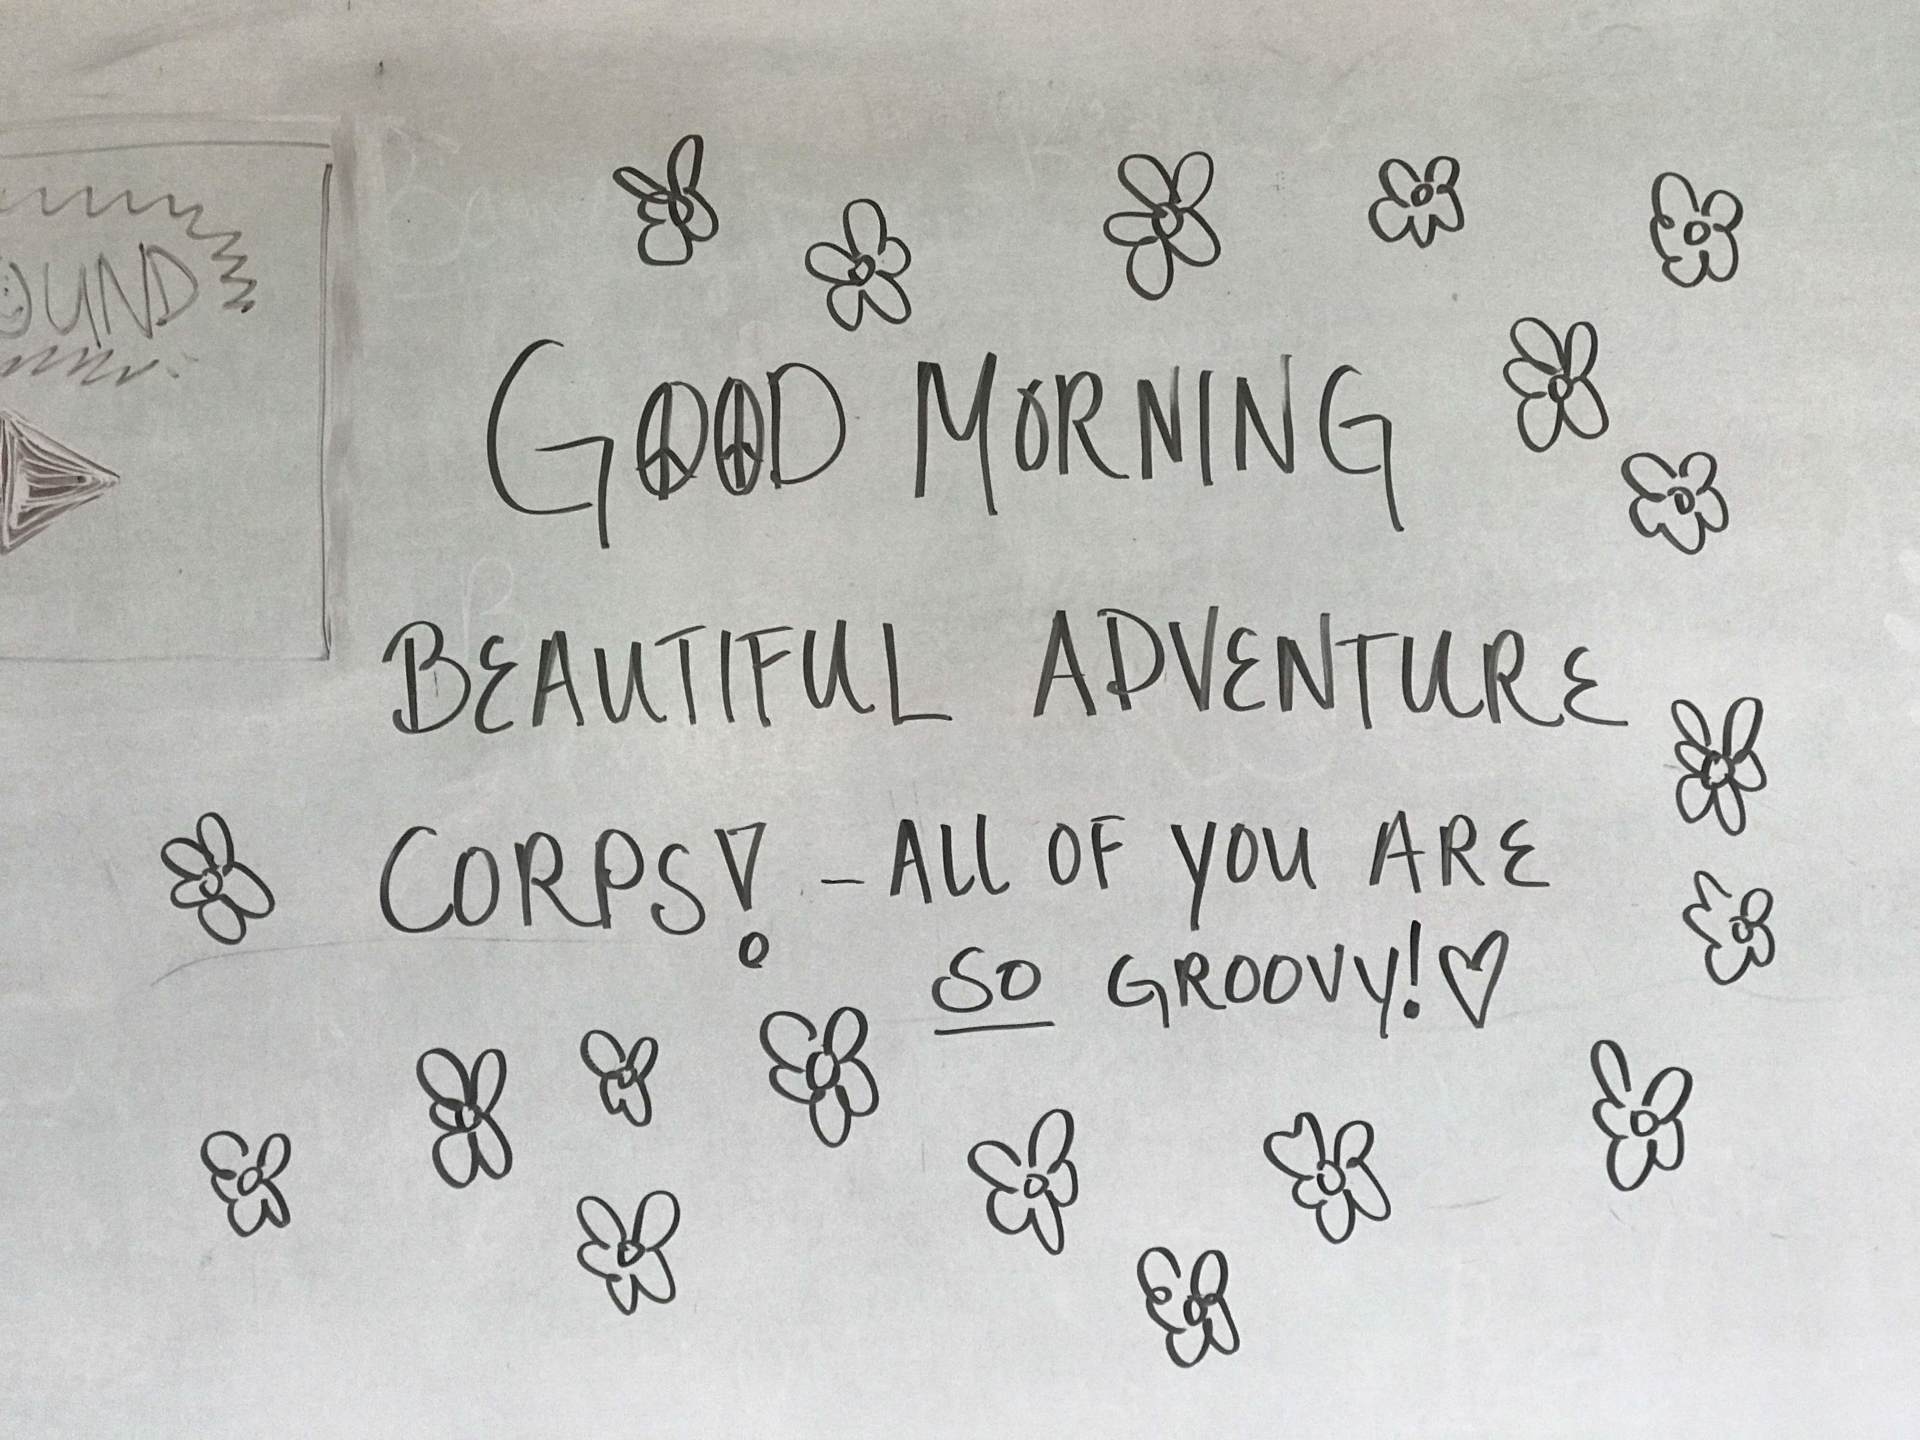 GOOD MORNING
BEAUTIFUL ADVENTURE
CORPS! - ALL OF YOU ARE
SO GROOVY! ♡
OUND